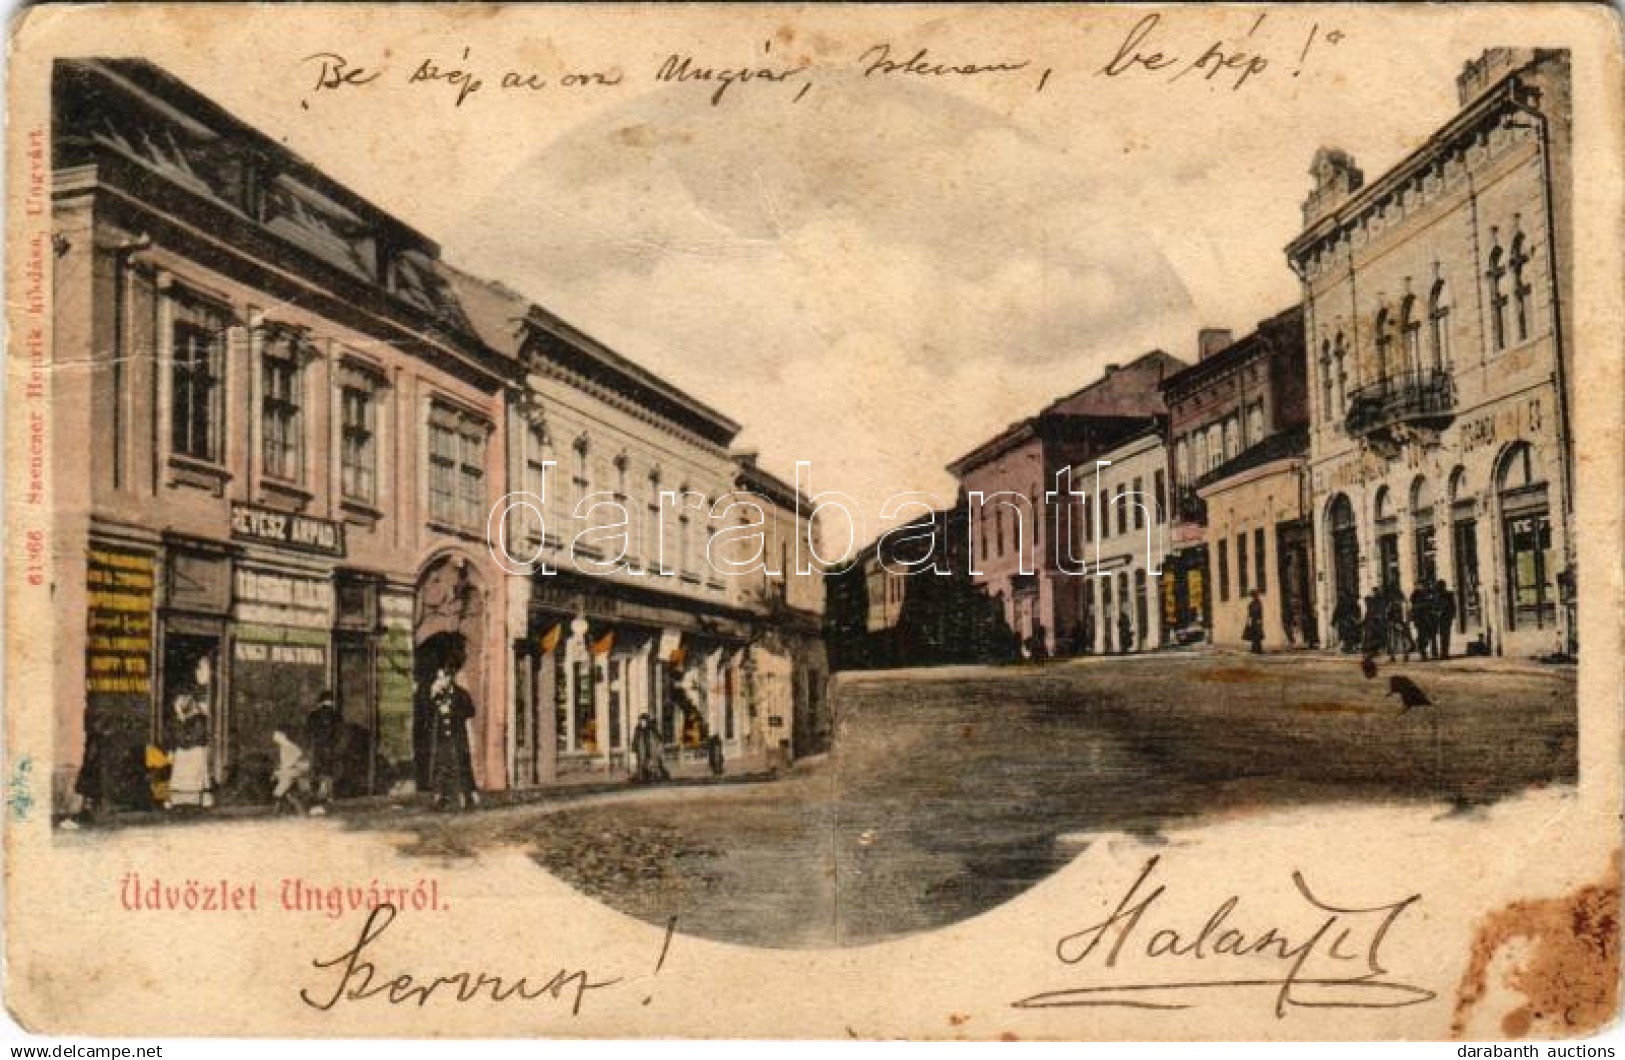 "Be szép az ősi Ungvár, Istenem, be szép!"
61566 Szenczer Henrik kiadása, Ungvárt.
RÉVÉSZ ÁRPÁD
darabanth
Üdvözlet Ungvárról.
Szervusz!
darabanth auctions
www.delcampe.net